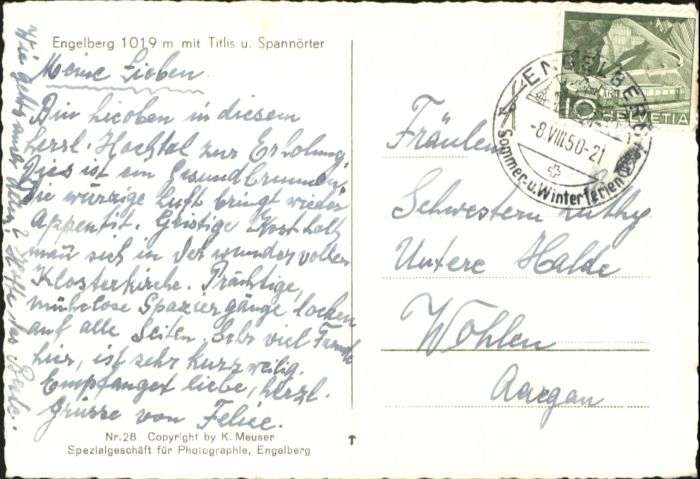 Engelberg 1019 m mit Titlis u. Spannörter
Meine Lieben
Bin hieoben in diesem
herrl. Hochtal zur Erholung.
Dies ist ein Gesundbrunnen.
Die würzige Luft bringt wieder
Appentit. Geistige Kost holt
man sich in der wundervollen
Klosterkirche. Prächtige,
mühelose Spaziergänge locken
auf alle Seiten. Sehr viel Fremde
hier, ist sehr kurzweilig.
Empfanget liebe, herzl.
Grüsse von Felice.
Wie gehts auch Allen? Hoffe das Beste.
Nr. 28 Copyright by K. Meuser
Spezialgeschäft für Photographie, Engelberg
T
ENGELBERG
-8.VIII.50-21
Sommer-u.Winterferien
10 HELVETIA
Fräulein
Schwestern Luthy
Untere Halde
Wohlen
Aargau